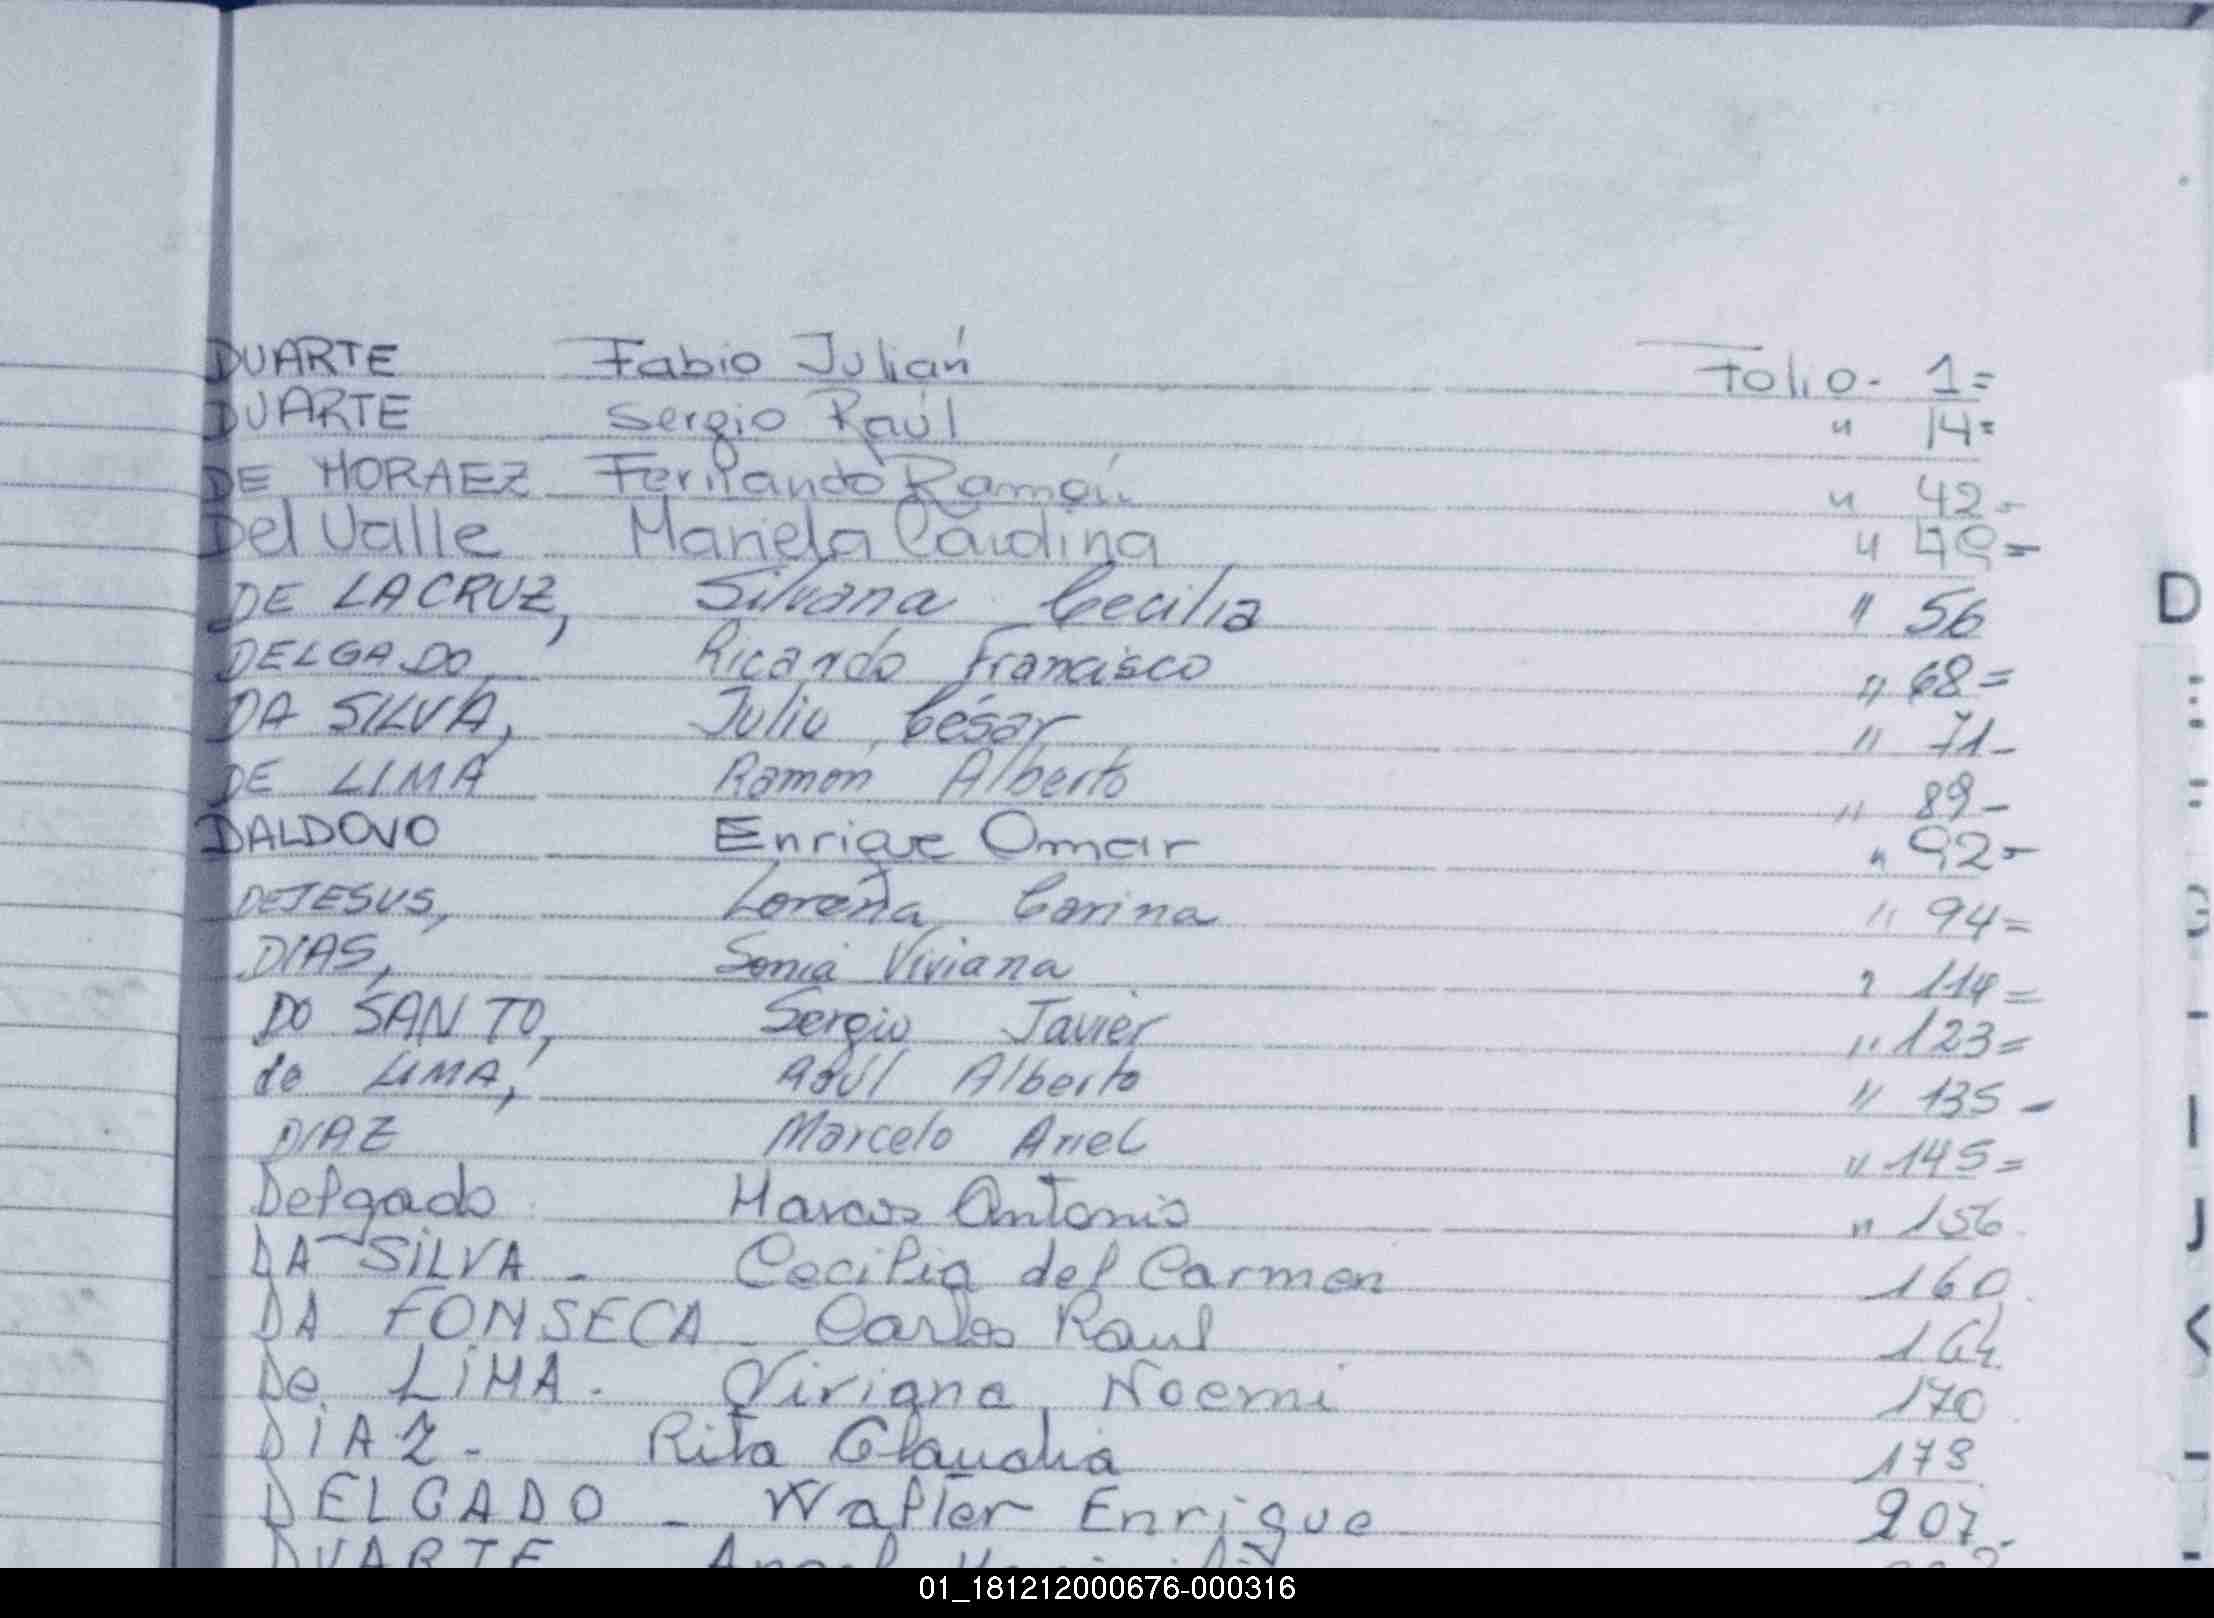 DUARTE Fabio Julián Folio - 1=
DUARTE Sergio Raúl " 14=
DE MORAEZ Fernando Ramón " 42-
Del Valle Mariela Carolina " 49=
DE LA CRUZ, Silvana Cecilia " 56
DELGADO, Ricardo Francisco " 68=
DA SILVA, Julio César " 71-
DE LIMA Ramón Alberto " 89-
DALDOVO Enrique Omar " 92-
DEJESUS, Lorena Carina " 94=
DIAS, Sonia Viviana " 114=
DO SANTO, Sergio Javier " 123=
de LIMA, Raúl Alberto " 135-
DIAZ Marcelo Ariel " 145=
Delgado Marcos Antonio " 156
DA SILVA - Cecilia del Carmen 160
DA FONSECA - Carlos Raul 164
De LiMA - Viviana Noemi 170
DiAZ - Rita Claudia 173
DELGADO - Walter Enrique 207-
DUARTE
D
G
I
J
K
01_181212000676-000316